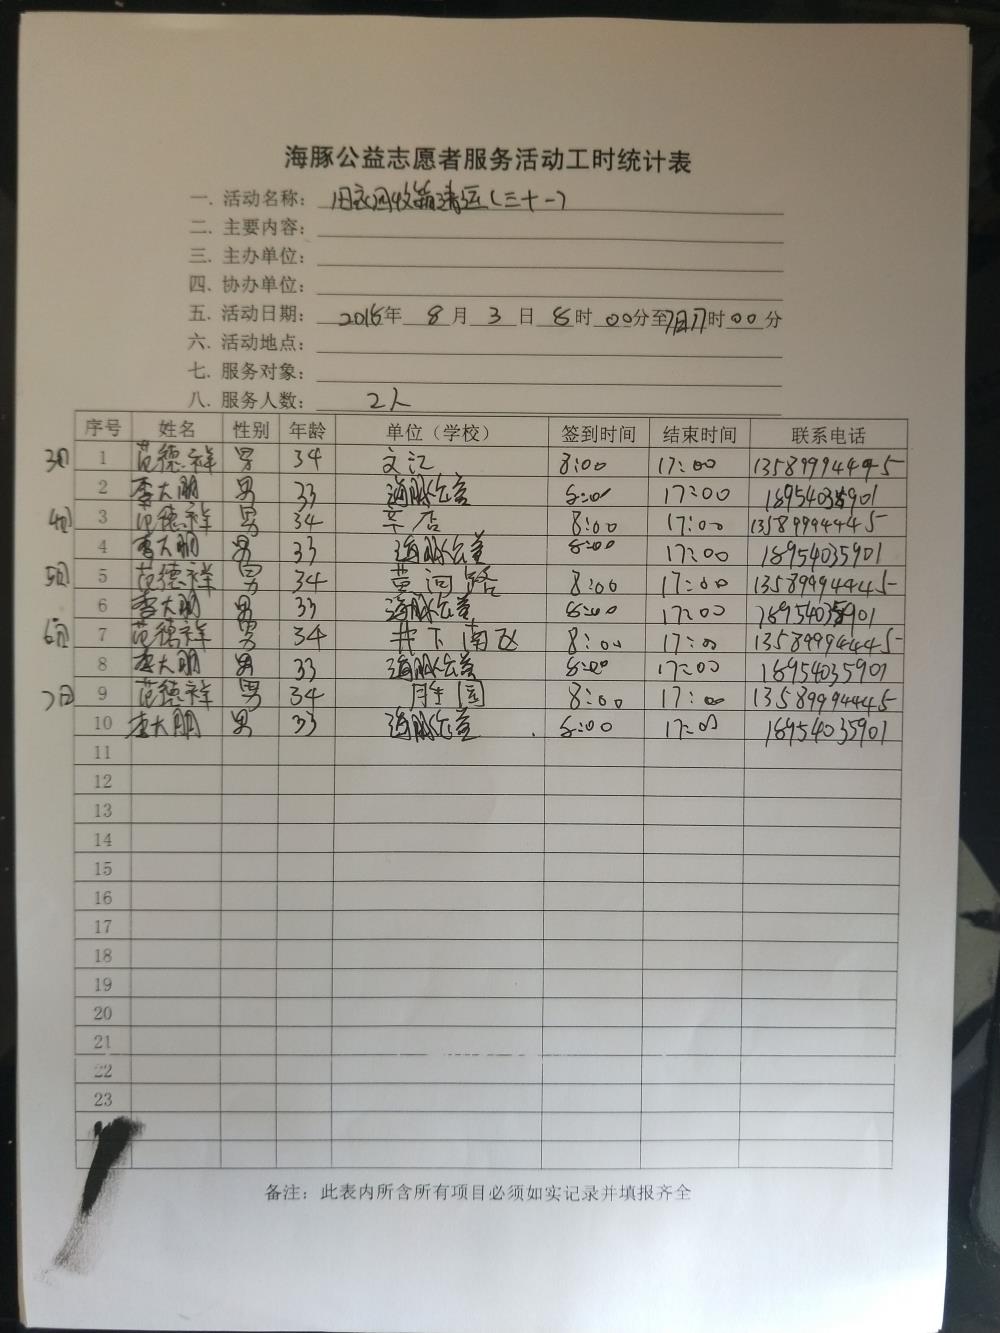 海豚公益志愿者服务活动工时统计表
一. 活动名称: 旧衣回收箱清运(三十一)
二. 主要内容:
三. 主办单位:
四. 协办单位:
五. 活动日期: 2015年 8月 3日 8时 00分至7日17时00分
六. 活动地点:
七. 服务对象:
八. 服务人数: 2人
序号 姓名 性别 年龄 单位(学校) 签到时间 结束时间 联系电话
3日 1 范德祥 男 34 文汇 8:00 17:00 13589994445
2 李大朋 男 33 海豚公益 8:00 17:00 18954035901
4日 3 范德祥 男 34 辛店 8:00 17:00 13589994445
4 李大朋 男 33 海豚公益 8:00 17:00 18954035901
5日 5 范德祥 男 34 黄河路 8:00 17:00 13589994445
6 李大朋 男 33 海豚公益 8:00 17:00 18954035901
6日 7 范德祥 男 34 井下南区 8:00 17:00 13589994445
8 李大朋 男 33 海豚公益 8:00 17:00 18954035901
7日 9 范德祥 男 34 园 8:00 17:00 13589994445
10 李大朋 男 33 海豚公益 8:00 17:00 18954035901
11
12
13
14
15
16
17
18
19
20
21
22
23
备注: 此表内所含所有项目必须如实记录并填报齐全